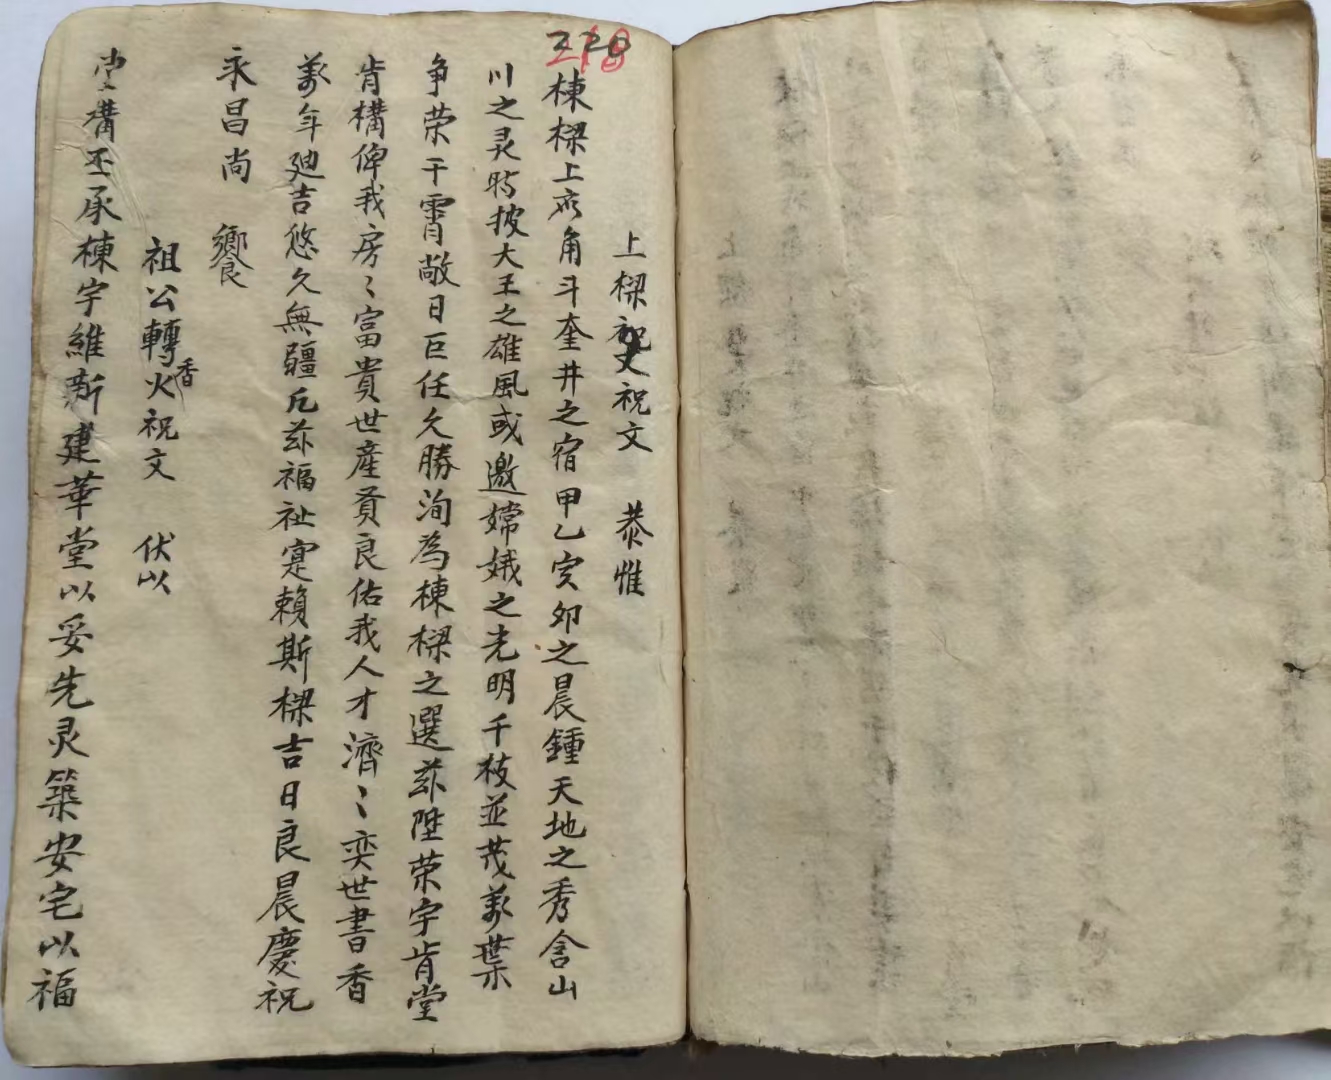 218
上樑祝文祝文 恭惟
棟樑上應角斗奎井之宿甲乙寅卯之晨鍾天地之秀含山
川之灵時披大王之雄風或邀嫦娥之光明千枝並茂萬葉
争荣干霄敞日巨任久勝洵為棟樑之選兹陞荣宇肯堂
肯構俾我房〻富貴世產賢良佑我人才濟〻奕世書香
萬年廸吉悠久無疆凡兹福祉寔賴斯樑吉日良晨慶祝
永昌尚 饗
祖公轉火香祝文 伏以
堂構丕承棟宇維新建華堂以妥先灵築安宅以福